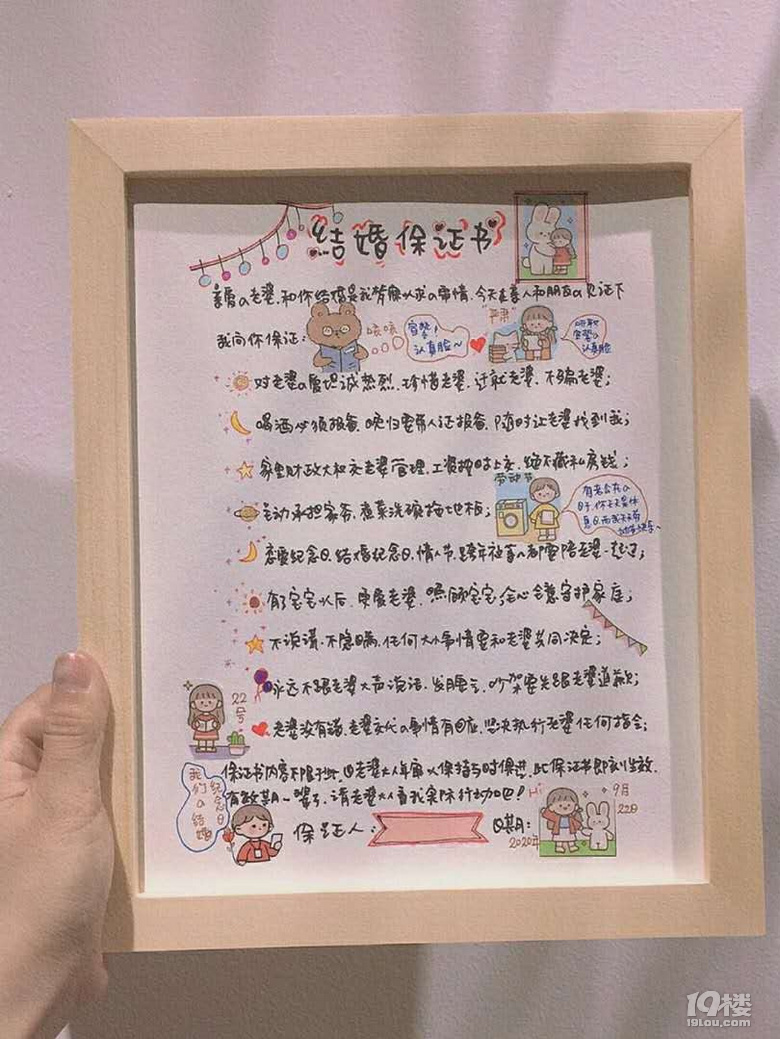 结婚保证书
亲爱a老婆，和你结婚是我梦寐以求a事情，今天在亲人和朋友a见证下
我向你保证：
咳咳
官誓！
认真脸～
"严肃"
官誓a
认真脸
对老婆a爱坦诚热烈，珍惜老婆，迁就老婆，不骗老婆；
喝酒必须报备，晚归要带人证报备，随时让老婆找到我；
家里财政大权交老婆管理，工资按时上交，绝不藏私房钱；
劳动节
主动承担家务，煮菜洗碗拖地板；
有老公在a
日子，你天天是休
息日，而我天天劳
动节快乐～
恋爱纪念日，结婚纪念日，情人节，跨年往事a都要陪老婆一起过；
有了宝宝以后，更爱老婆，照顾宝宝，全心全意守护家庭；
不说谎，不隐瞒，任何大小事情要和老婆共同决定；
永远不跟老婆大声说话，发脾气，吵架要先跟老婆道歉；
22号
老婆没有错，老婆交代a事情有回应，坚决执行老婆任何指令；
保证书内容不限于此，由老婆大人年审以保持与时俱进，此保证书即刻生效，
有效期一辈子，请老婆大人看我实际行动吧！
我们a结婚
纪念日
保证人：
日期：
2020年
Hi
9月
22日
19楼
19lou.com